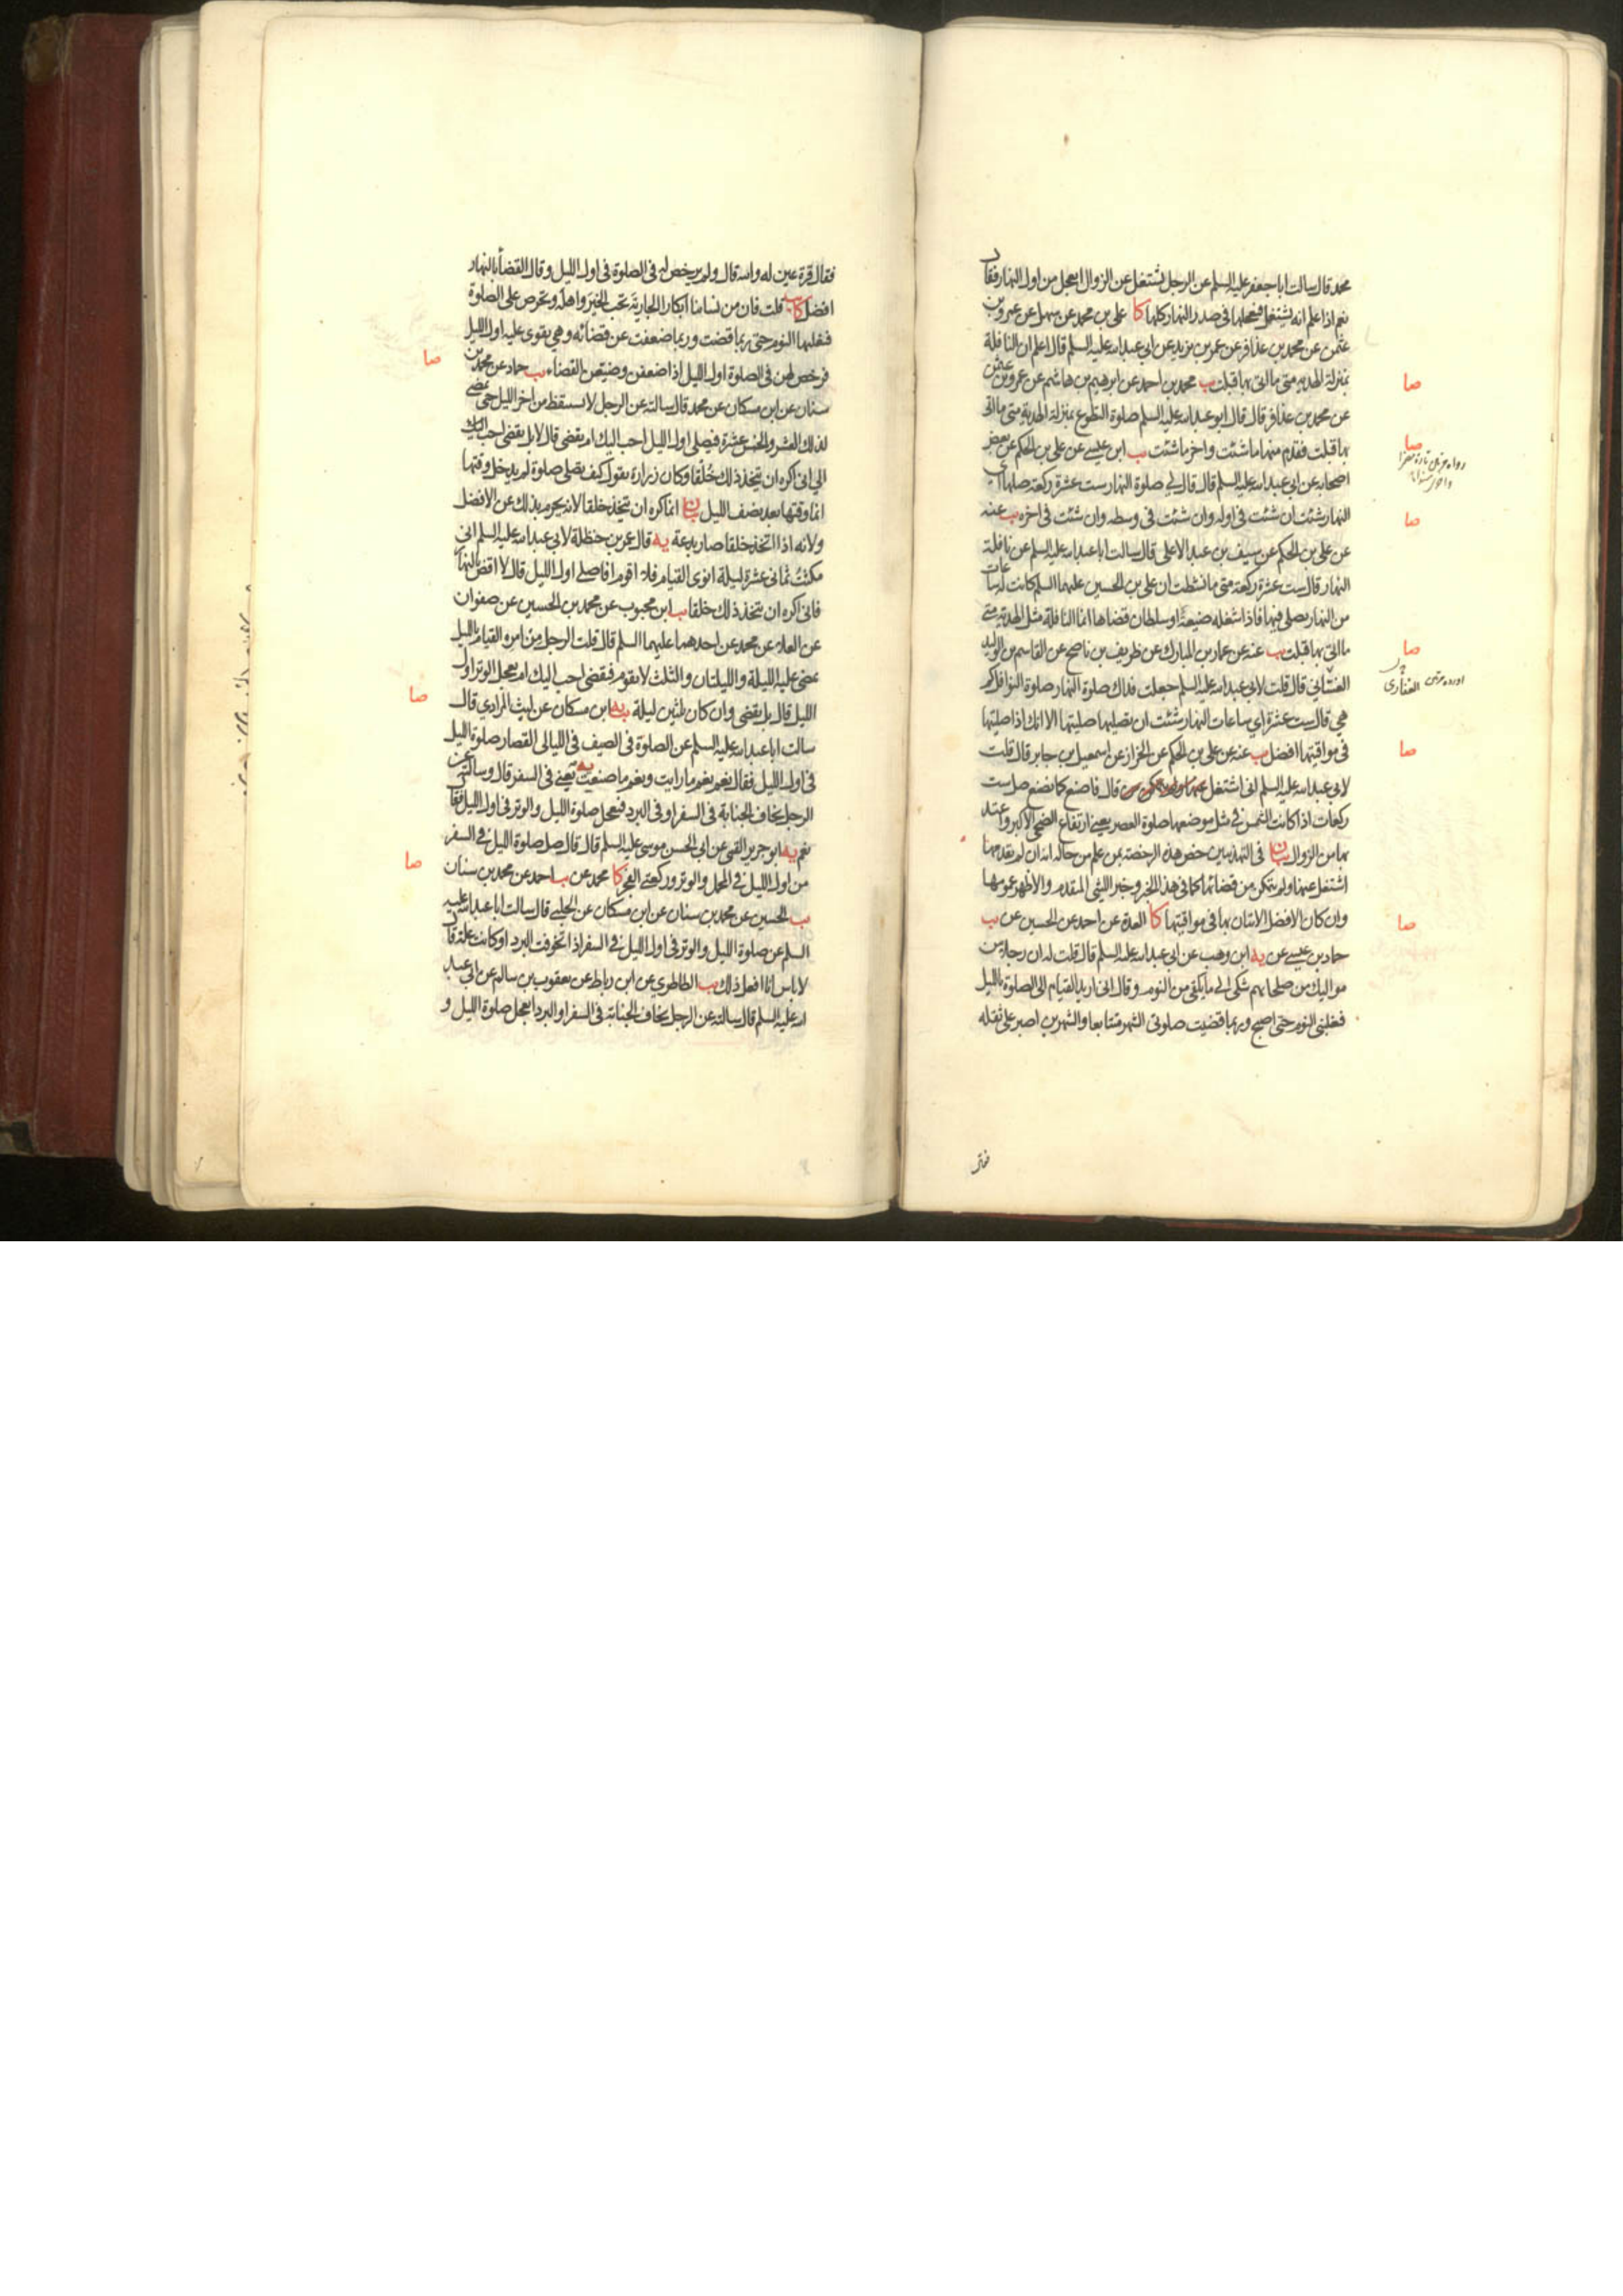 محمد قال سالت ابا جعفر عليه السلم عن الرجل يشتغل عن الزوال ايعجل من اول النهار فقال
نعم اذا علم انه يشتغل فيعجلها في صدر النهار كلها كا علي بن محمد عن سهل عن عمرو بن
عثمن عن محمد بن عذافر عن عمر بن يزيد عن ابي عبدالله عليه السلم قال اعلم ان النافلة
بمنزلة الهدية متى ما اتى بها قبلت يب محمد بن احمد عن ابرهيم بن هاشم عن عمرو بن عثمن
عن محمد بن عذافر قال قال ابو عبدالله عليه السلم صلوة التطوع بمنزلة الهدية متى ما اتى
بها قبلت فقدم منها ما شئت واخر ما شئت يب ابن عيسى عن علي بن الحكم عن بعض
اصحابه عن ابي عبدالله عليه السلم قال قال لي صلوة النهار ست عشرة ركعة صلها اي
النهار شئت ان شئت في اوله وان شئت في وسطه وان شئت في اخره يب عنه
عن علي بن الحكم عن سيف بن عبد الاعلى قال سالت ابا عبدالله عليه السلم عن نافلة
النهار قال ست عشرة ركعة متى ما نشطت ان علي بن الحسين عليهما السلم كانت له ساعات
من النهار يصلي فيها فاذا شغله ضيعة او سلطان قضاها انما النافلة مثل الهدية متى
ما اتى بها قبلت يب عنه عن عمار بن المبارك عن ظريف بن ناصح عن القاسم بن الوليد
الغساني قال قلت لابي عبدالله عليه السلم جعلت فداك صلوة النهار صلوة النوافل كم
هي قال ست عشرة اي ساعات النهار شئت ان تصليها صليتها الا انك اذا صليتها
في مواقيتها افضل يب عنه عن علي بن الحكم عن الخراز عن اسمعيل بن جابر قال قلت
لابي عبدالله عليه السلم اني اشتغل قال فاصنع كما نصنع صل ست
ركعات اذا كانت الشمس في مثل موضعها صلوة العصر يعني ارتفاع الضحى الاكبر واعتد
بها من الزوال بيان في التهذيبين خص هذه الرخصة بمن علم من حاله انه ان لم يقدمها
اشتغل عنها ولم يتمكن من قضائها كما في هذا الخبر وخبر الليثي المقدم والاظهر عمومها
وان كان الافضل الاتيان بها في مواقيتها كا العدة عن احمد عن الحسين عن يب
حماد بن عيسى عن يه ابن وهب عن ابي عبدالله عليه السلم قال قلت له ان رجلا من
مواليك من صلحائهم شكى الي ما يلقى من النوم وقال اني اريد القيام الى الصلوة بالليل
فيغلبني النوم حتى اصبح وربما قضيت صلوتي الشهر متتابعا والشهرين اصبر على ثقله
صا
صا
صا
صا
صا
صا
فقال قرة عين له والله قال ولم يرخص له في الصلوة في اول الليل وقال القضاء بالنهار
افضل كا يب قلت فان من نسائنا ابكارا الجارية تحب الخير واهله وتحرص على الصلوة
فيغلبها النوم حتى ربما قضت وربما ضعفت عن قضائه وهي تقوى عليه اول الليل
فرخص لهن في الصلوة اول الليل اذا ضعفن وضيعن القضاء يب حماد عن محمد بن
سنان عن ابن مسكان عن محمد قال سالته عن الرجل لا يستيقظ من اخر الليل حتى يمضي
لذلك العشر والخمس عشرة فيصلي اول الليل احب اليك ام يقضي قال لا بل يقضي احب
الي اني اكره ان يتخذ ذلك خلقا وكان زرارة يقول كيف يقضي صلوة لم يدخل وقتها
انما وقتها بعد نصف الليل بيان انما كره ان يتخذ خلقا لانه يحرم بذلك عن الافضل
ولانه اذا اتخذ خلقا صار بدعة يه قال عمر بن حنظلة لابي عبدالله عليه السلم اني
مكثت ثماني عشرة ليلة انوي القيام فلا اقوم افاصلي اول الليل قال لا اقض بالنهار
فاني اكره ان تتخذ ذلك خلقا يب ابن محبوب عن محمد بن الحسين عن صفوان
عن العلا عن محمد عن احدهما عليهما السلم قال قلت الرجل من امره القيام بالليل
يمضي عليه الليلة والليلتان والثلث لا يقوم فيقضي احب اليك ام يعجل الوتر اول
الليل قال بل يقضي وان كان ثلثين ليلة يب يه ابن مسكان عن ليث المرادي قال
سالت ابا عبدالله عليه السلم عن الصلوة في الصيف في الليالي القصار صلوة الليل
في اول الليل فقال نعم نعم ما رايت ونعم ما صنعت يه يعني في السفر قال وسالته عن
الرجل يخاف الجنابة في السفر او في البرد فيعجل صلوة الليل والوتر في اول الليل فقال
نعم يه ابو جرير القمي عن ابي الحسن موسى عليه السلم قال قال صل صلوة الليل في السفر
من اول الليل في المحمل والوتر وركعتي الفجر كا محمد عن يب احمد عن محمد بن سنان
يب الحسين عن محمد بن سنان عن ابن مسكان عن الحلبي قال سالت ابا عبدالله عليه
السلم عن صلوة الليل والوتر في اول الليل في السفر اذا تخوفت البرد او كانت علة قال
لا باس انا افعل ذلك يب الطاطري عن ابن رباط عن يعقوب بن سالم عن ابي عبد
الله عليه السلم قال سالته عن الرجل يخاف الجنابة في السفر او البرد ايعجل صلوة الليل و
صا
صا
صا